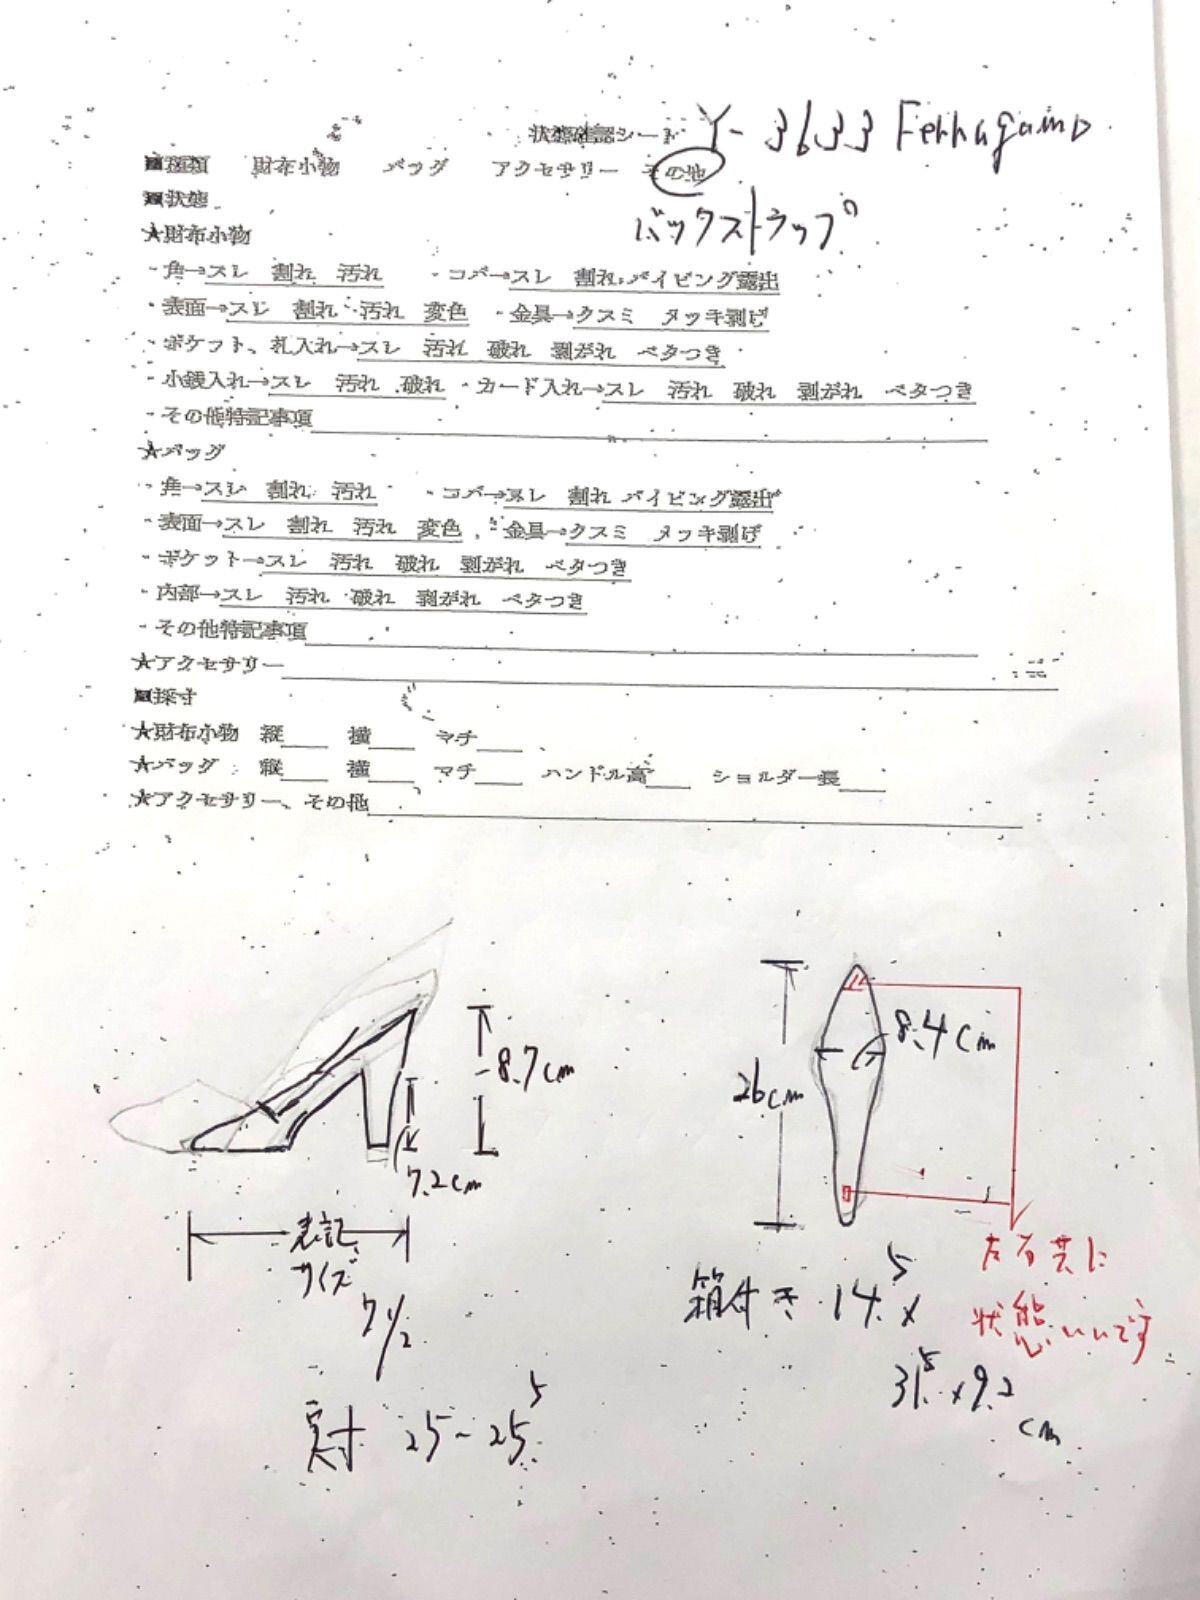 状態確認シート Y-3633 Ferragamo
■種類 財布小物 バッグ アクセサリー その他
バックストラップ
■状態
★財布小物
・角→スレ 割れ 汚れ ・コバ→スレ 割れ パイピング露出
・表面→スレ 割れ 汚れ 変色 ・金具→クスミ メッキ剥げ
・ポケット、札入れ→スレ 汚れ 破れ 剥がれ ベタつき
・小銭入れ→スレ 汚れ 破れ ・カード入れ→スレ 汚れ 破れ 剥がれ ベタつき
・その他特記事項
★バッグ
・角→スレ 割れ 汚れ ・コバ→スレ 割れ パイピング露出
・表面→スレ 割れ 汚れ 変色 ・金具→クスミ メッキ剥げ
・ポケット→スレ 汚れ 破れ 剥がれ ベタつき
・内部→スレ 汚れ 破れ 剥がれ ベタつき
・その他特記事項
★アクセサリー
■採寸
★財布小物 縦 横 マチ
★バッグ 縦 横 マチ ハンドル高 ショルダー長
★アクセサリー、その他
8.7cm
7.2cm
表記
サイズ
7 1/2
実寸 25~25.5
8.4cm
26cm
左右共に
状態いいです
箱付き 14.5×
31.5×9.2
cm